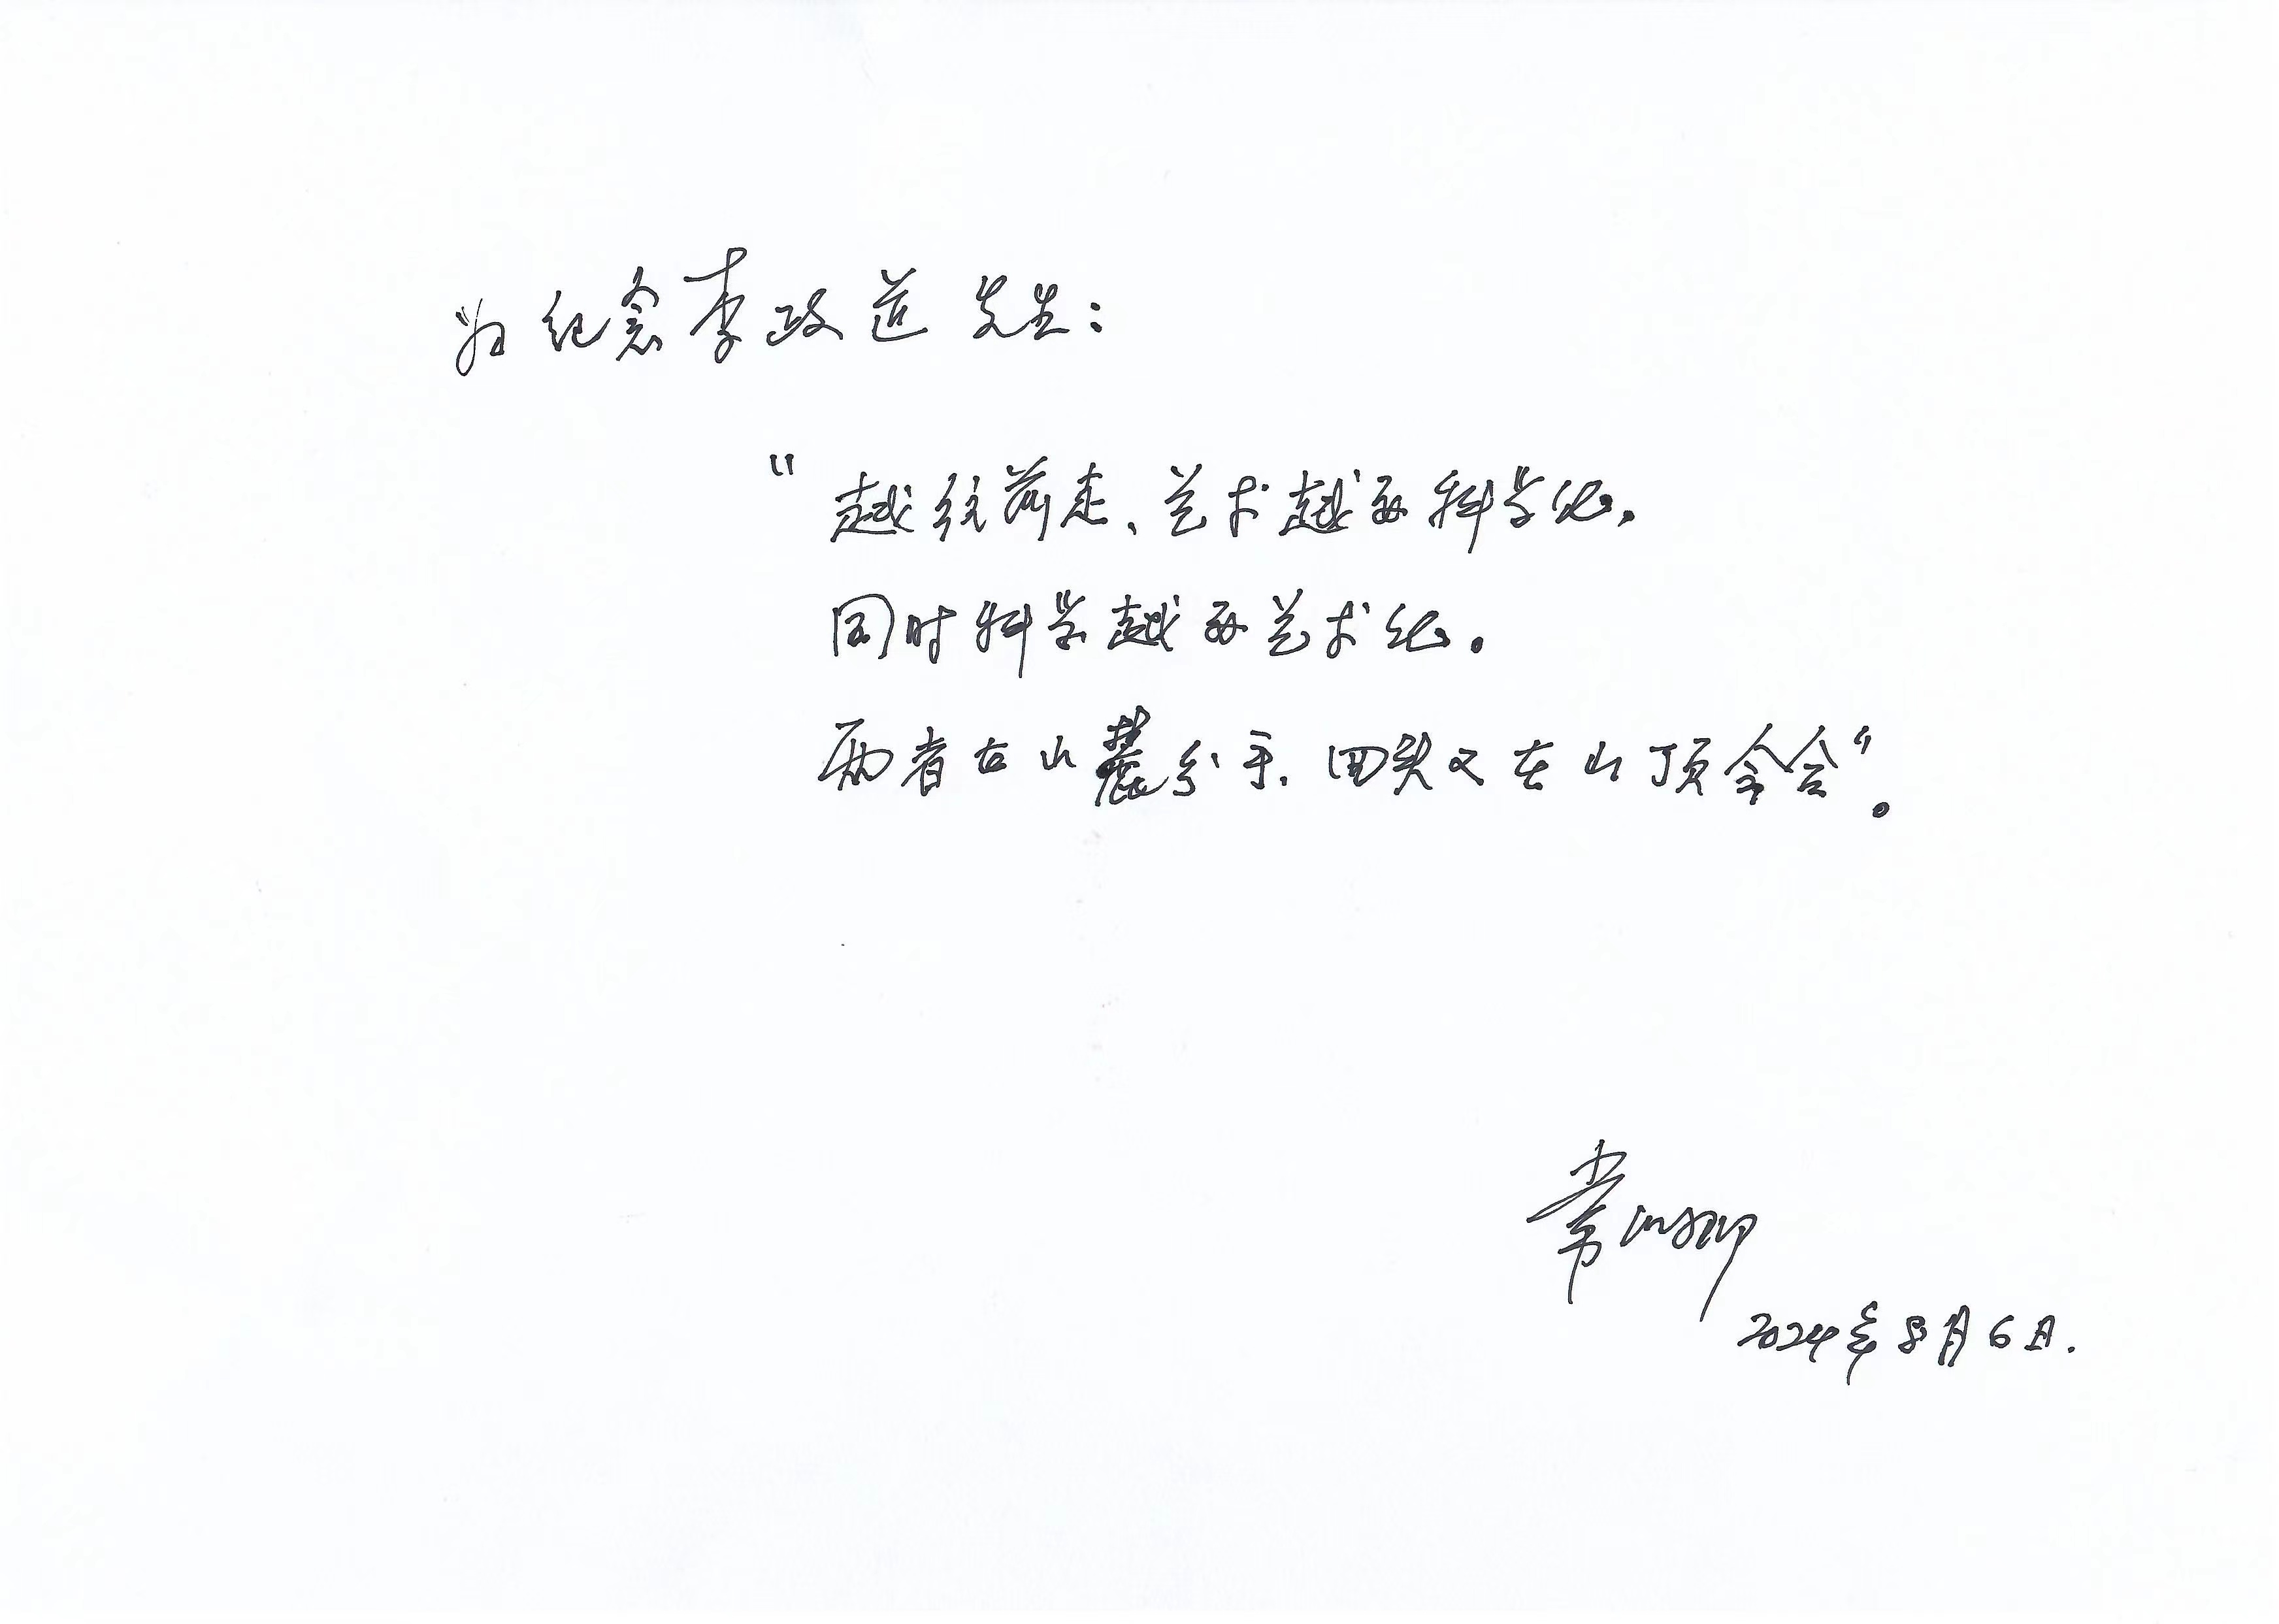 为纪念李政道先生：
“越往前走、艺术越要科学化，
同时科学越要艺术化。
两者在山麓分手，回头又在山顶会合”。
常沙娜
2024年8月6日.